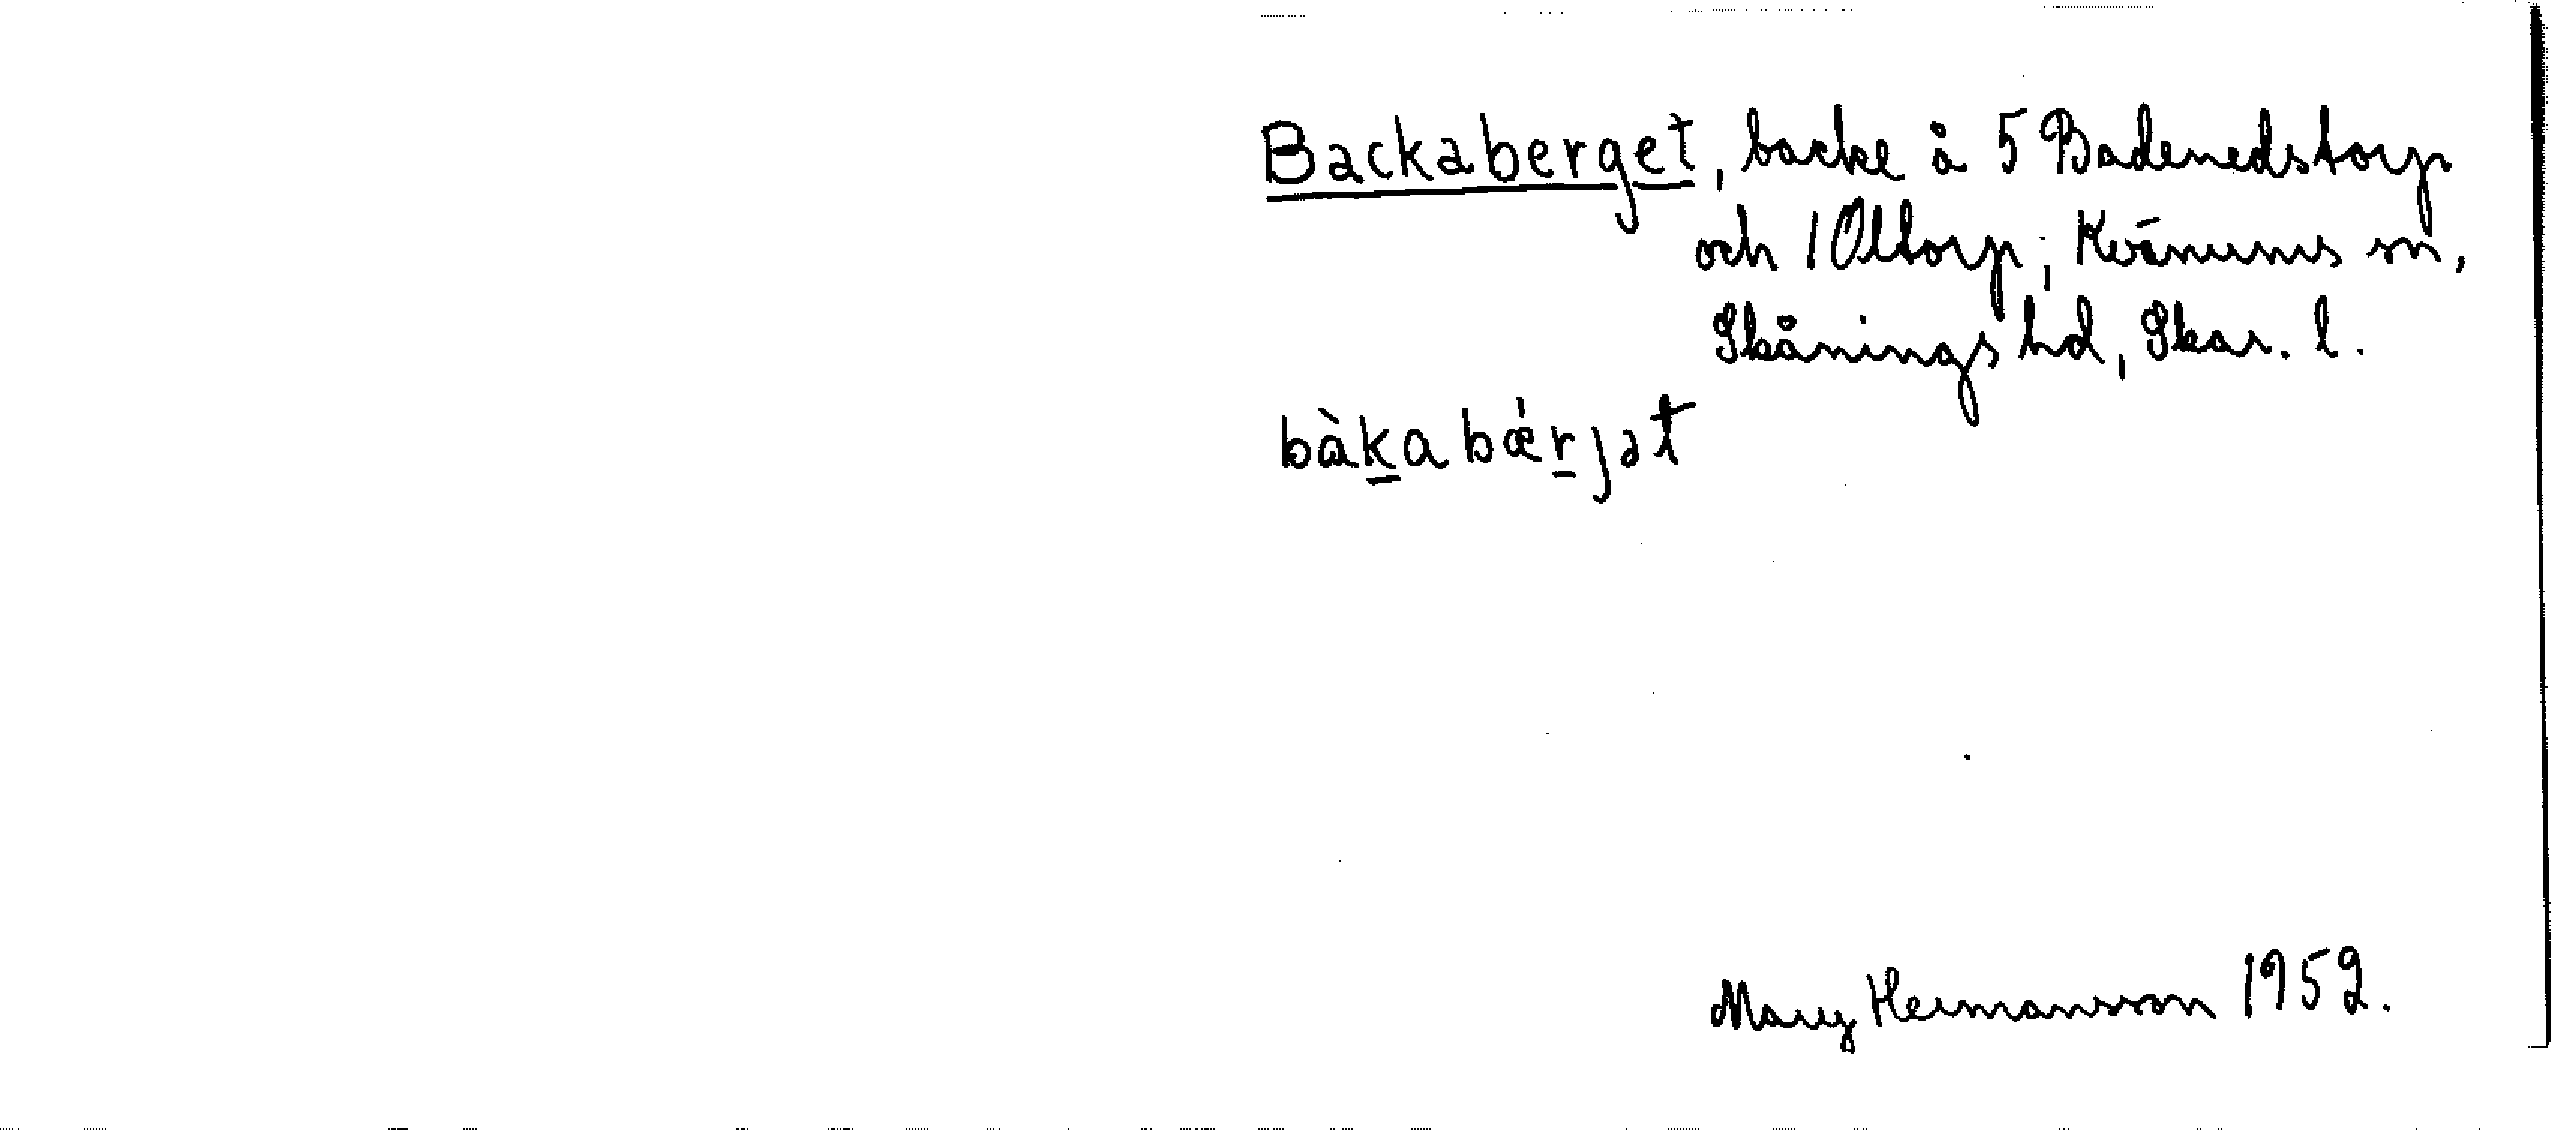 Backaberget, backe å 5 Badenedstorp
och 1 Oltorp; Kvänums sn,
Skånings hd, Skar. l.
bàk̠abǽr̠jət
Mary Hermansson 1952.